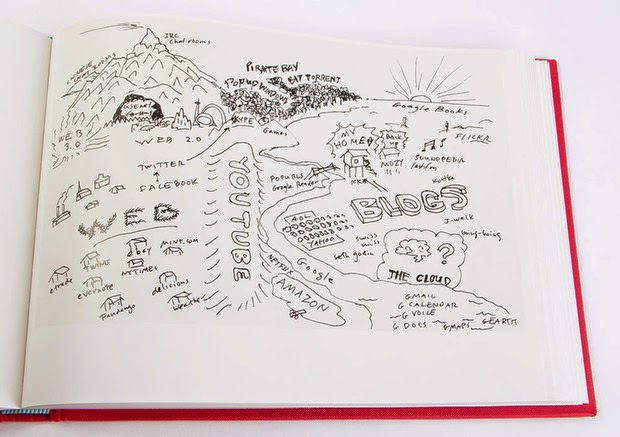 IRC
Chat rooms
CHINESE
CHAT ROOMS
PIRATE BAY
POPUP WINDOWS
BAT TORRENT
USENET
SKYPE
Games
WEB
3.0
WEB 2.0
Google Books
MY
HOME
BACK
UP
MOZY
!!!
FLICKR
SOUNDPEDIA
TWITTER
FACEBOOK
YOUTUBE
POPURLS
Google Reader
KK*
Kottke
BLOGS
J-WALK
boing-boing
WEB
AOL
YAHOO
SWISS
MISS
seth godin
THE CLOUD
?
ebay
MINT.COM
NYTIMES
TWINE
etrade
evernote
Fandango
delicious
weather
NETFLIX
Google
AMAZON
GMAIL
G CALENDAR
G VOICE
G DOCS
GMAPS
GEARTH